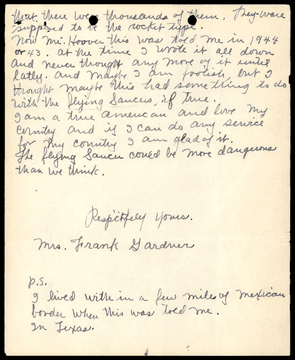 that there were thousands of them. They were
supposed to be the rocket type.
Now Mr. Hoover this was told me in 1944
or 43. at the time I wrote it all down
and never thought any more of it until
lately. and maybe I am foolish but I
thought maybe this had something to do
with the flying Saucers, if true.
I am a true american and love my
Country and if I can do any service
for my country I am glad of it.
The flying Saucer could be more dangerous
than we think.
Respectfully Yours.
Mrs. Frank Gardner
P.S.
I lived with in a few miles of mexican
border when this was told me.
In Texas.